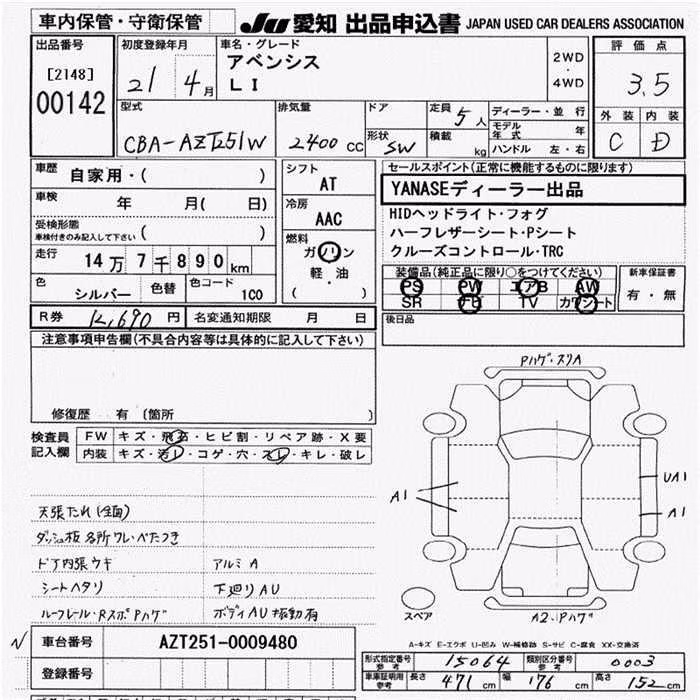 車内保管・守衛保管
JU 愛知 出品申込書 JAPAN USED CAR DEALERS ASSOCIATION
出品番号
[2148]
00142
初度登録年月
21 4 月
車名・グレード
アベンシス
LI
2WD
・
4WD
評価点
3.5
外装 内装
C D
型式
CBA-AZT251W
排気量
2400 CC
ドア
形状 SW
定員 5 人
積載 kg
ディーラー・並行
モデル年式 年
ハンドル 左・右
車歴 自家用・( )
車検 年 月( 日)
受検形態
車検付きのみ記入して下さい ( )
走行 14万7千890km
色 シルバー 色替 色コード 1C0
シフト
AT
冷房
AAC
燃料
ガソリン
軽・油
( )
セールスポイント(正常に機能するものに限ります)
YANASEディーラー出品
HIDヘッドライト・フォグ
ハーフレザーシート・Pシート
クルーズコントロール・TRC
装備品(純正品に限り○をつけてください)
PS PW エアB AW
SR ナビ TV カワシート
新車保証書
有・無
R券 12,690 円 名変通知期限 月 日
後日品
注意事項申告欄(不具合内容等は具体的に記入して下さい)
修復歴 有〔箇所 〕
検査員
記入欄
FW キズ・飛石・ヒビ割・リペア跡・X要
内装 キズ・汚レ・コゲ・穴・スレ・キレ・破レ
天張たれ(全面)
ダッシュ板 各所ワレ・べたつき
ドア内張ウキ アルミA
シートヘタリ 下廻りAU
ルーフレール・RスポPハゲ ボディAU 振動有
Pハゲ・スリA
A1
UA1
A1
スペア
A2・Pハゲ
A-キズ E-エクボ U-凹み W-補修跡 S-サビ C-腐食 XX-交換済
車台番号 AZT251-0009480
登録番号
形式指定番号 参考 15064 類別区分番号 参考 0003
車庫証明用 参考 長さ 471 cm 幅 176 cm 高さ 152 cm